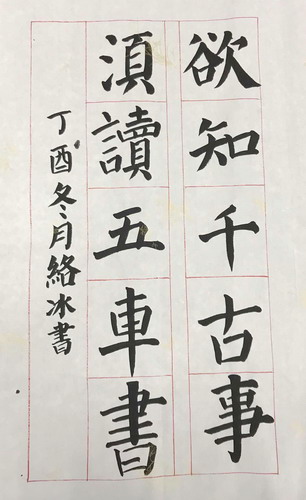 欲知千古事
須讀五車書
丁酉冬月絡冰書